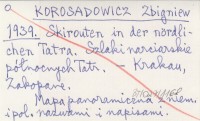 KOROSADOWICZ Zbigniew
1939. Skirouten in der nördli-
chen Tatra. Szlaki narciarskie
północnych Tatr. — Krakau,
Zakopane.
Mapa panoramiczna z niem.
i pol. nazwami i napisami.